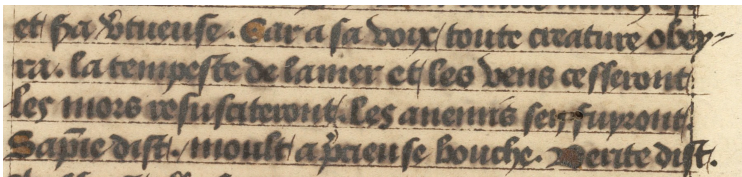 et sa v̾tueuse. Car a sa voix/ toute creature obey-
ra. la tempeste de la mer et/ les vens cesseront/
les mors resusciteront/. les anemis sen fuyront/.
Sapīe dist. moult/ a p̾cieuse bouche. Verite dist.